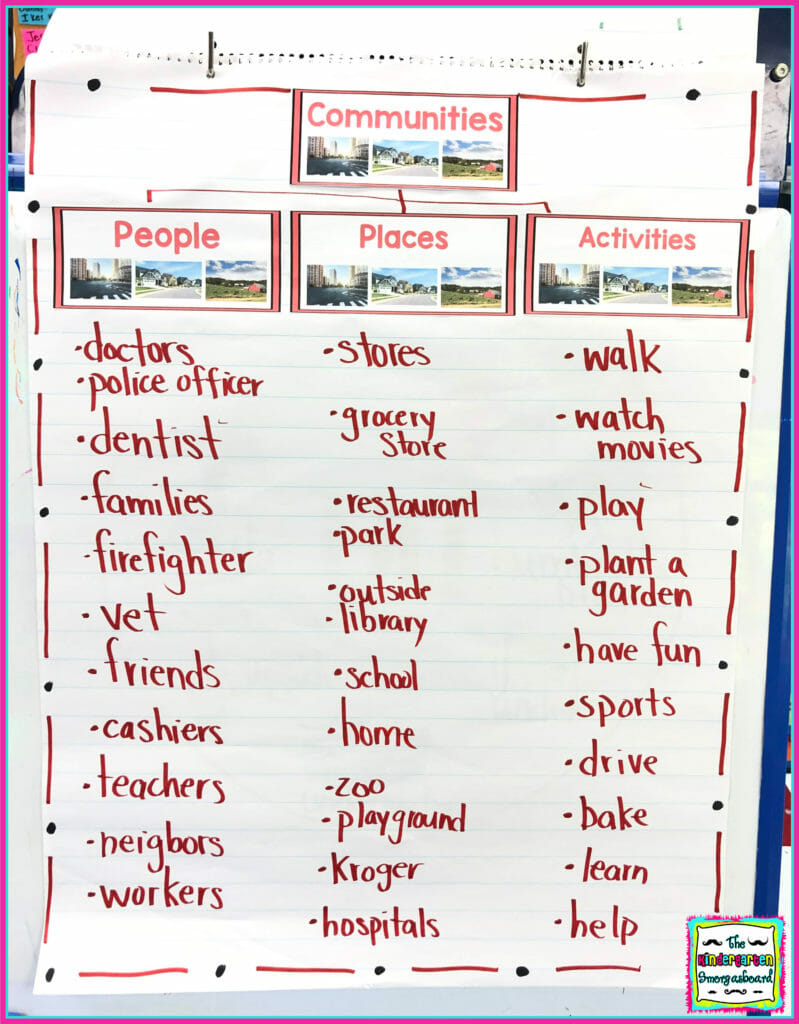 Communities
People
·doctors
·police officer
·dentist
·families
·firefighter
·vet
·friends
·cashiers
·teachers
·neigbors
·workers
Places
·stores
·grocery
store
·restaurant
·park
·outside
·library
·school
·home
·zoo
·playground
·Kroger
·hospitals
Activities
·walk
·watch
movies
·play
·plant a
garden
·have fun
·sports
·drive
·bake
·learn
·help
The
Kindergarten
Smorgasboard